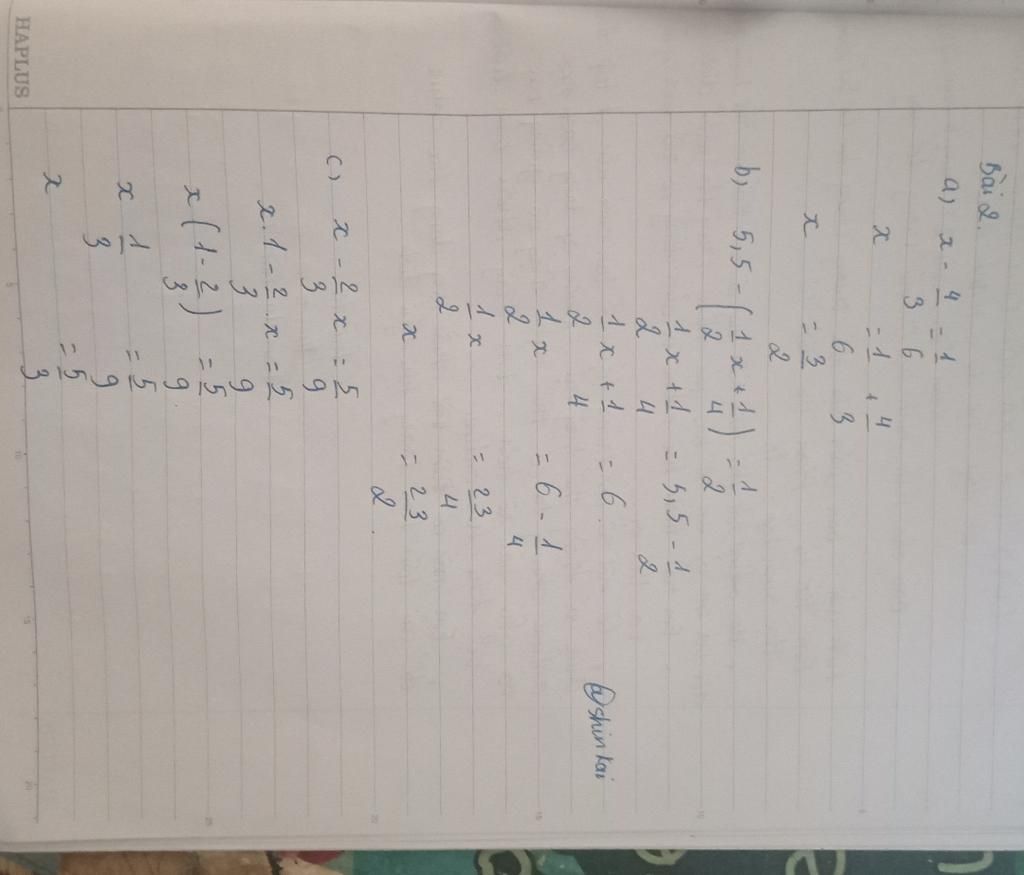 HAPLUS
Bài 2.
a, x - 4/3 = 1/6
x = 1/6 + 4/3
x = 3/2
b, 5,5 - (1/2 x + 1/4) = 1/2
1/2 x + 1/4 = 5,5 - 1/2
1/2 x + 1/4 = 6
1/2 x = 6 - 1/4
1/2 x = 23/4
x = 23/2.
@shinkai
c, x - 2/3 x = 5/9
x.1 - 2/3.x = 5/9
x (1 - 2/3) = 5/9
x 1/3 = 5/9
x = 5/3